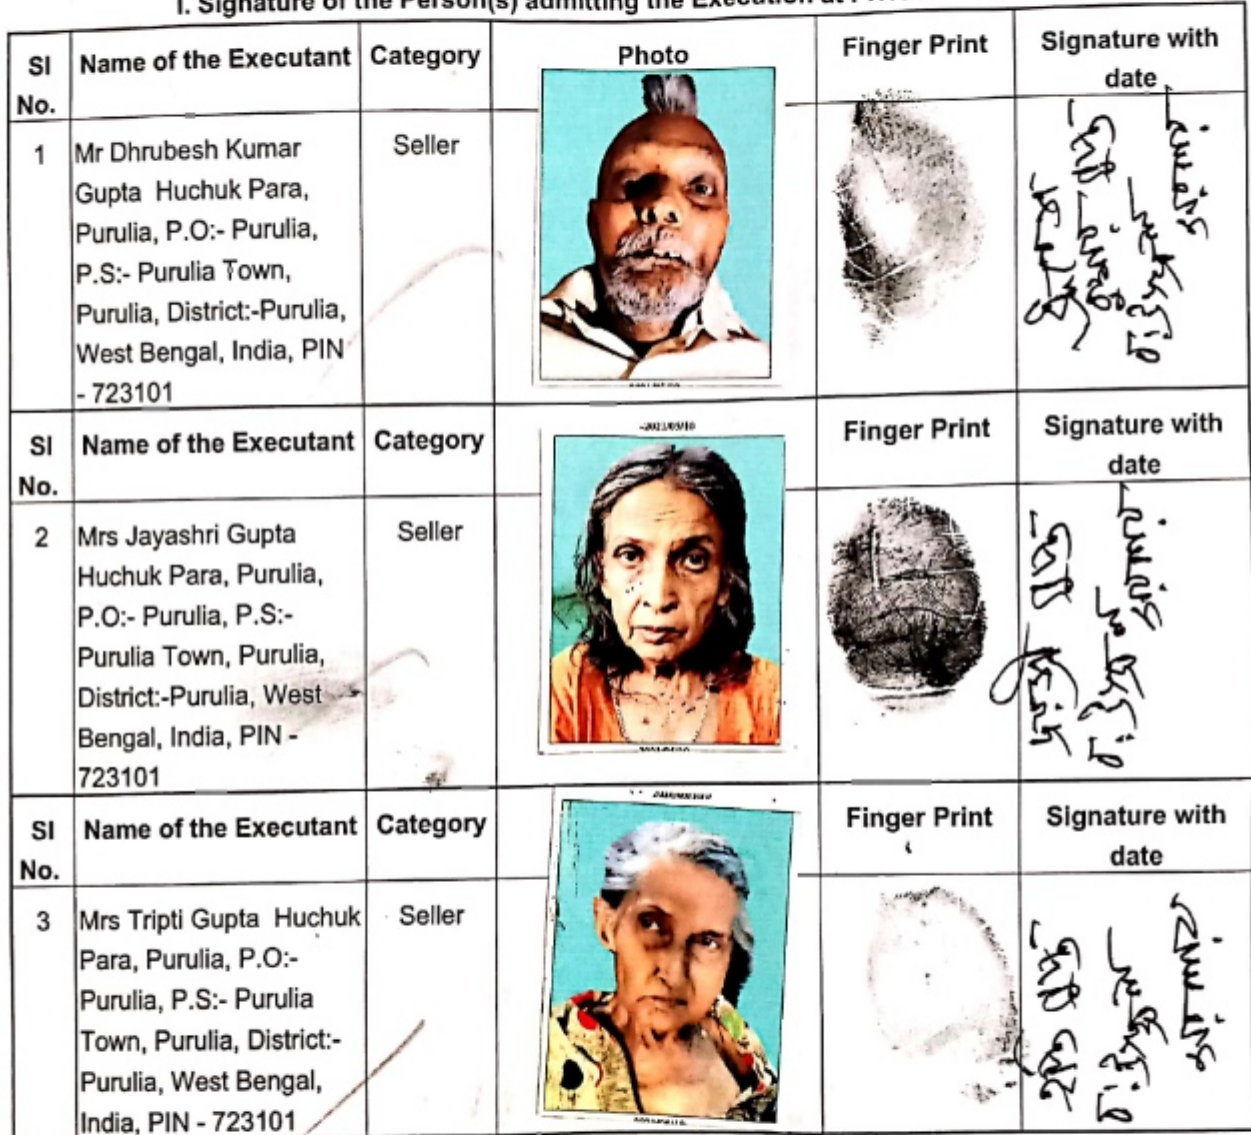 I. Signature of the Person(s) admitting the Execution at
Sl No. Name of the Executant Category Photo Finger Print Signature with date
1 Mr Dhrubesh Kumar Seller
Gupta Huchuk Para,
Purulia, P.O:- Purulia,
P.S:- Purulia Town,
Purulia, District:-Purulia,
West Bengal, India, PIN
- 723101
Sl No. Name of the Executant Category Finger Print Signature with date
2 Mrs Jayashri Gupta Seller
Huchuk Para, Purulia,
P.O:- Purulia, P.S:-
Purulia Town, Purulia,
District:-Purulia, West
Bengal, India, PIN -
723101
Sl No. Name of the Executant Category Finger Print Signature with date
3 Mrs Tripti Gupta Huchuk Seller
Para, Purulia, P.O:-
Purulia, P.S:- Purulia
Town, Purulia, District:-
Purulia, West Bengal,
India, PIN - 723101